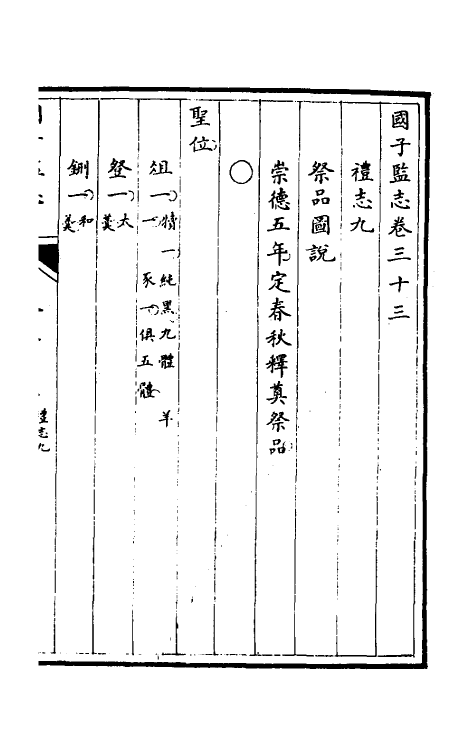 國子監志卷三十三
禮志九
祭品圖說
崇德五年定春秋釋奠祭品
○
聖位
俎一一犢一純黑九體 羊
豕一俱五體
登一太
羹
鉶一和
羹
禮志九